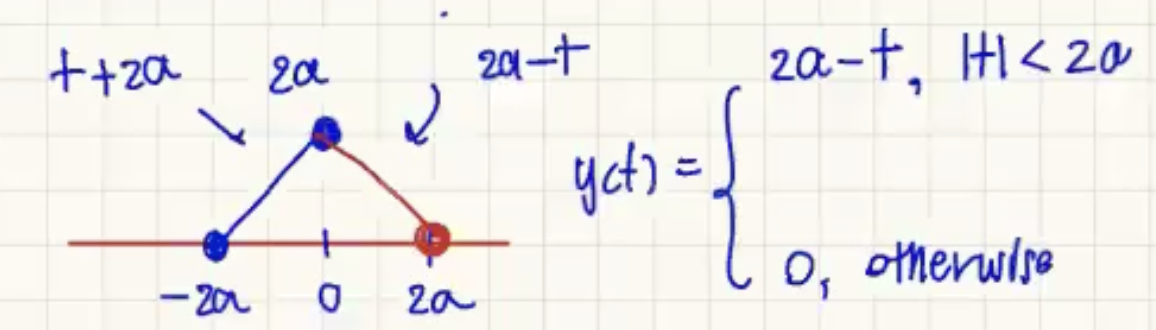 t+2a 2a 2a-t
-2a 0 2a
y(t) = { 2a-t, |t| < 2a
0, otherwise